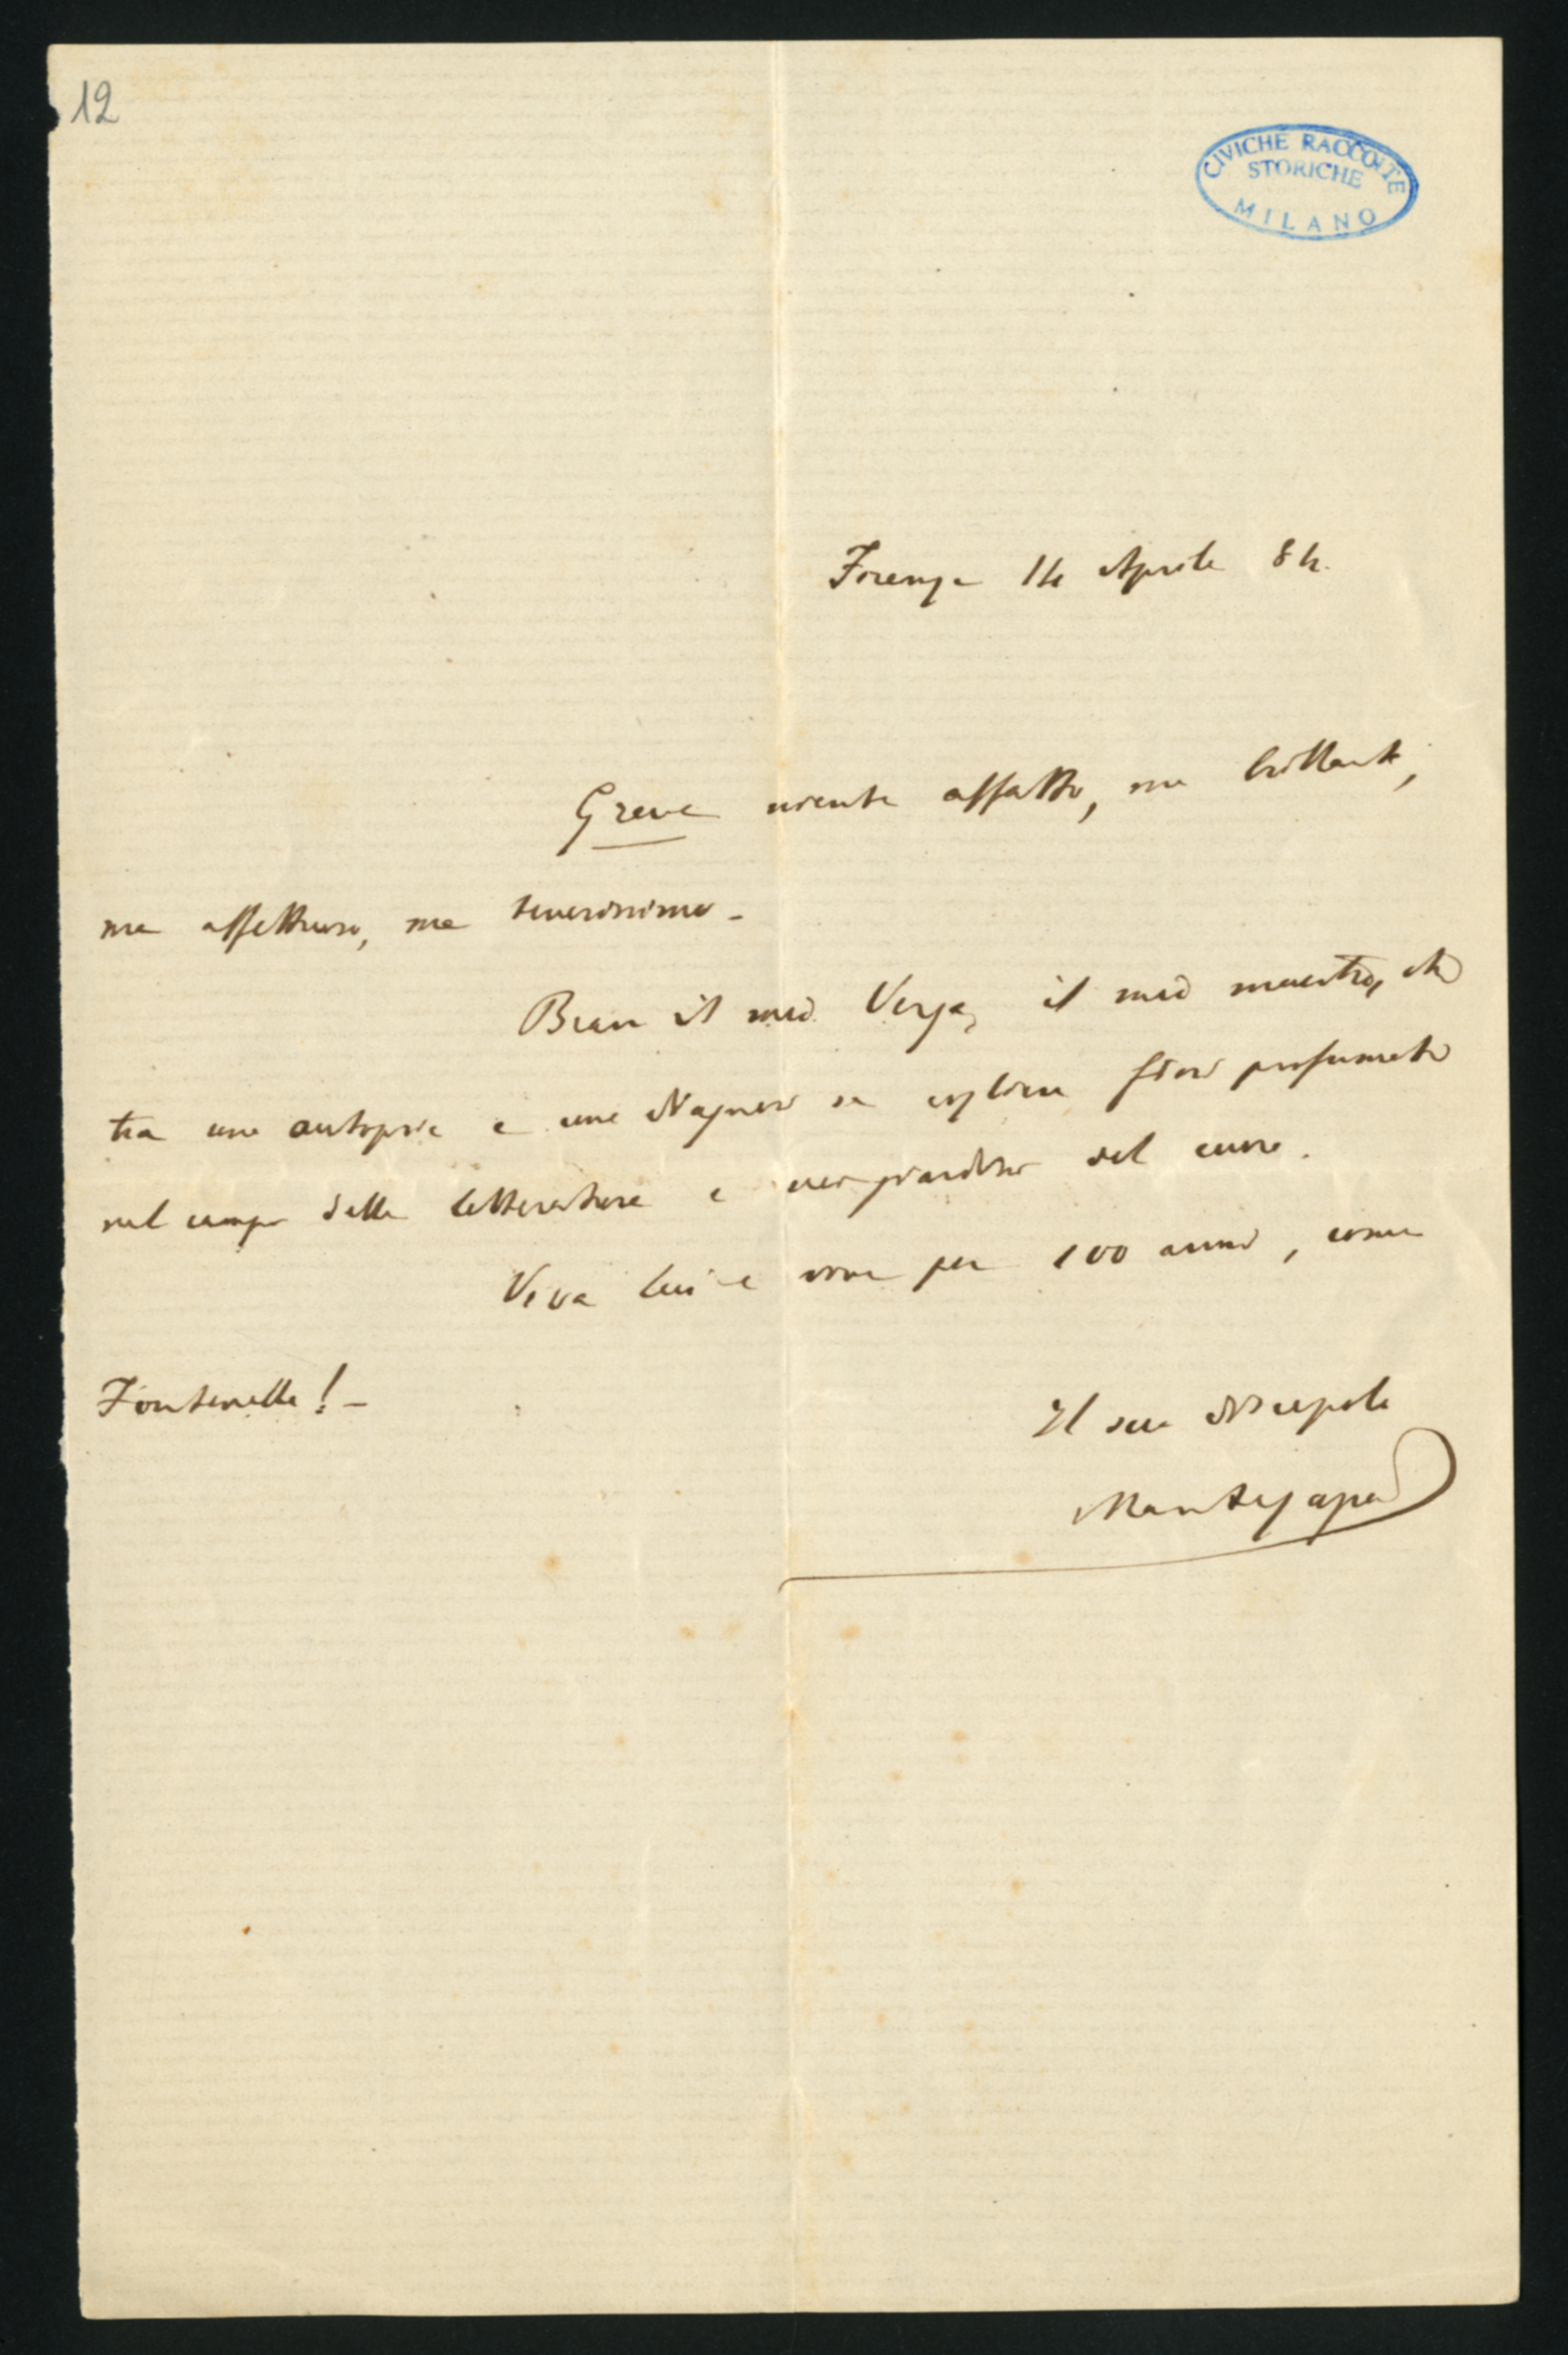 12
CIVICHE RACCOLTE
STORICHE
MILANO
Firenze 14 Aprile 84.
Greve niente affatto, ma brillante,
ma affettuoso, ma tenerissimo -
Bravo il mio Verga, il mio maestro, che
tra una autopsia e una diagnosi sa cogliere fiori profumati
nel campo della letteratura e nei giardini del cuore.
Viva lui e viva per 100 anni, come
Fontenelle! -
Il suo discepolo
Mantegazza